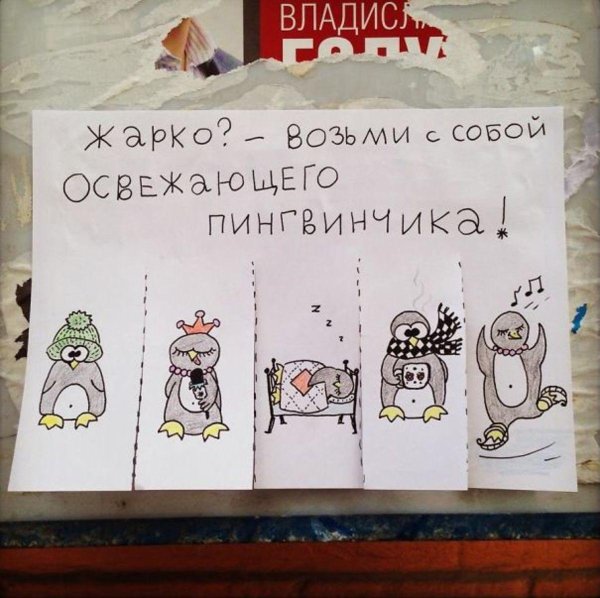 ВЛАДИСЛ
ГОЛУ
Жарко? – возьми с собой
освежающего
пингвинчика!
z
z
z